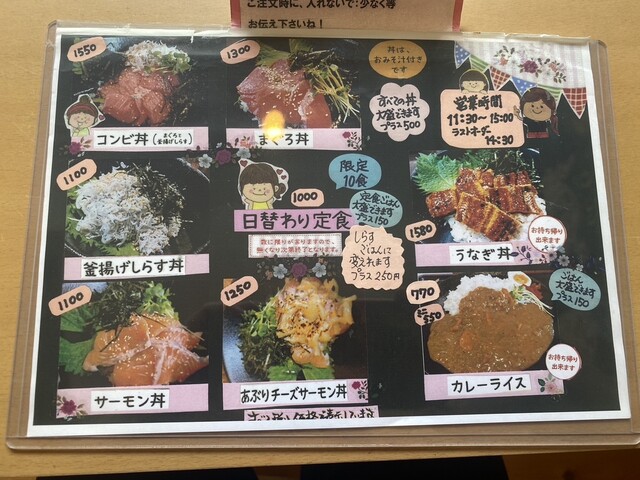 ご注文時に、入れないで:少なく等
お伝え下さいね!
1550
コンビ丼(まぐろと
釜揚げしらす)
1300
まぐろ丼
丼は、
おみそ汁付き
です
すべての丼
大盛できます
プラス500
営業時間
11:30~15:00
ラストオーダー
14:30
1100
釜揚げしらす丼
限定
10食
1000
日替わり定食
数に限りが有りますので、
無くなり次第終了となります。
定食ごはん
大盛できます
プラス150
しらす
ごはんに
変えれます
プラス250円
1580
うなぎ丼
お持ち帰り
出来ます
1100
サーモン丼
1250
あぶりチーズサーモン丼
770
ミニ
550
カレーライス
ごはん
大盛できます
プラス150
お持ち帰り
出来ます